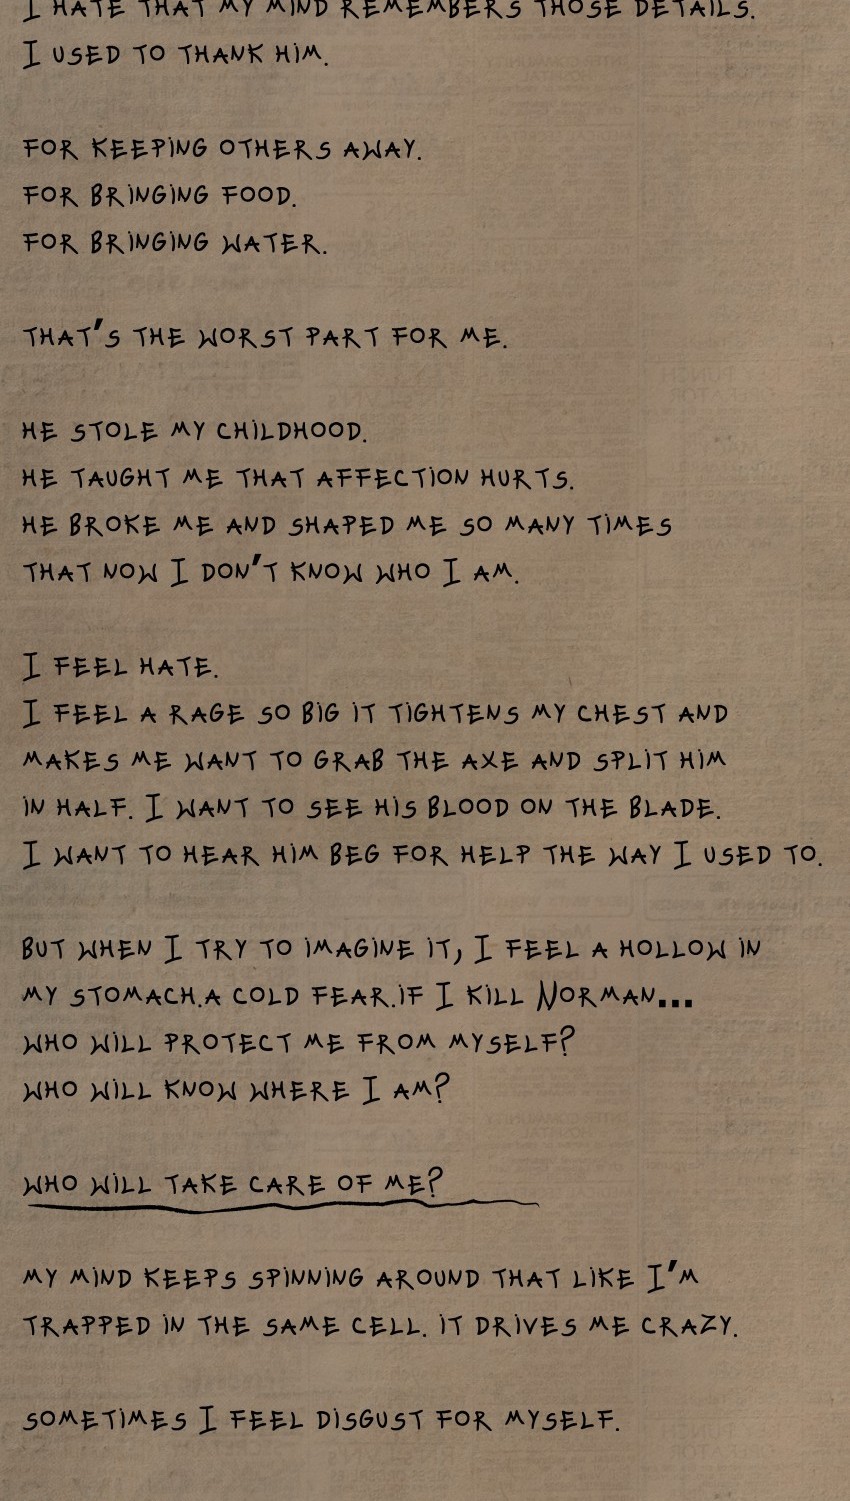 I HATE THAT MY MIND REMEMBERS THOSE DETAILS.
I USED TO THANK HIM.
FOR KEEPING OTHERS AWAY.
FOR BRINGING FOOD.
FOR BRINGING WATER.
THAT'S THE WORST PART FOR ME.
HE STOLE MY CHILDHOOD.
HE TAUGHT ME THAT AFFECTION HURTS.
HE BROKE ME AND SHAPED ME SO MANY TIMES
THAT NOW I DON'T KNOW WHO I AM.
I FEEL HATE.
I FEEL A RAGE SO BIG IT TIGHTENS MY CHEST AND
MAKES ME WANT TO GRAB THE AXE AND SPLIT HIM
IN HALF. I WANT TO SEE HIS BLOOD ON THE BLADE.
I WANT TO HEAR HIM BEG FOR HELP THE WAY I USED TO.
BUT WHEN I TRY TO IMAGINE IT, I FEEL A HOLLOW IN
MY STOMACH.A COLD FEAR.IF I KILL NORMAN...
WHO WILL PROTECT ME FROM MYSELF?
WHO WILL KNOW WHERE I AM?
WHO WILL TAKE CARE OF ME?
MY MIND KEEPS SPINNING AROUND THAT LIKE I'M
TRAPPED IN THE SAME CELL. IT DRIVES ME CRAZY.
SOMETIMES I FEEL DISGUST FOR MYSELF.